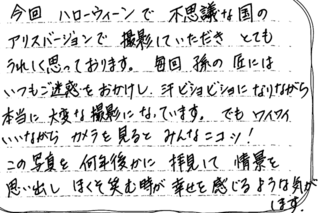 今回 ハローウィーンで 不思議な国の
アリスバージョンで 撮影していただき とても
うれしく思っております。 毎回 孫の 匠には
いつもご迷惑をおかけし、汗ビショビショになりながら
本当に 大変な撮影に なっています。 でも ワイワイ
いいながら カメラを見ると みんなニコッ!
この写真を 何年後かに 拝見して 情景を
思い出し ほくそ笑む時が 幸せを感じるような気が
します。